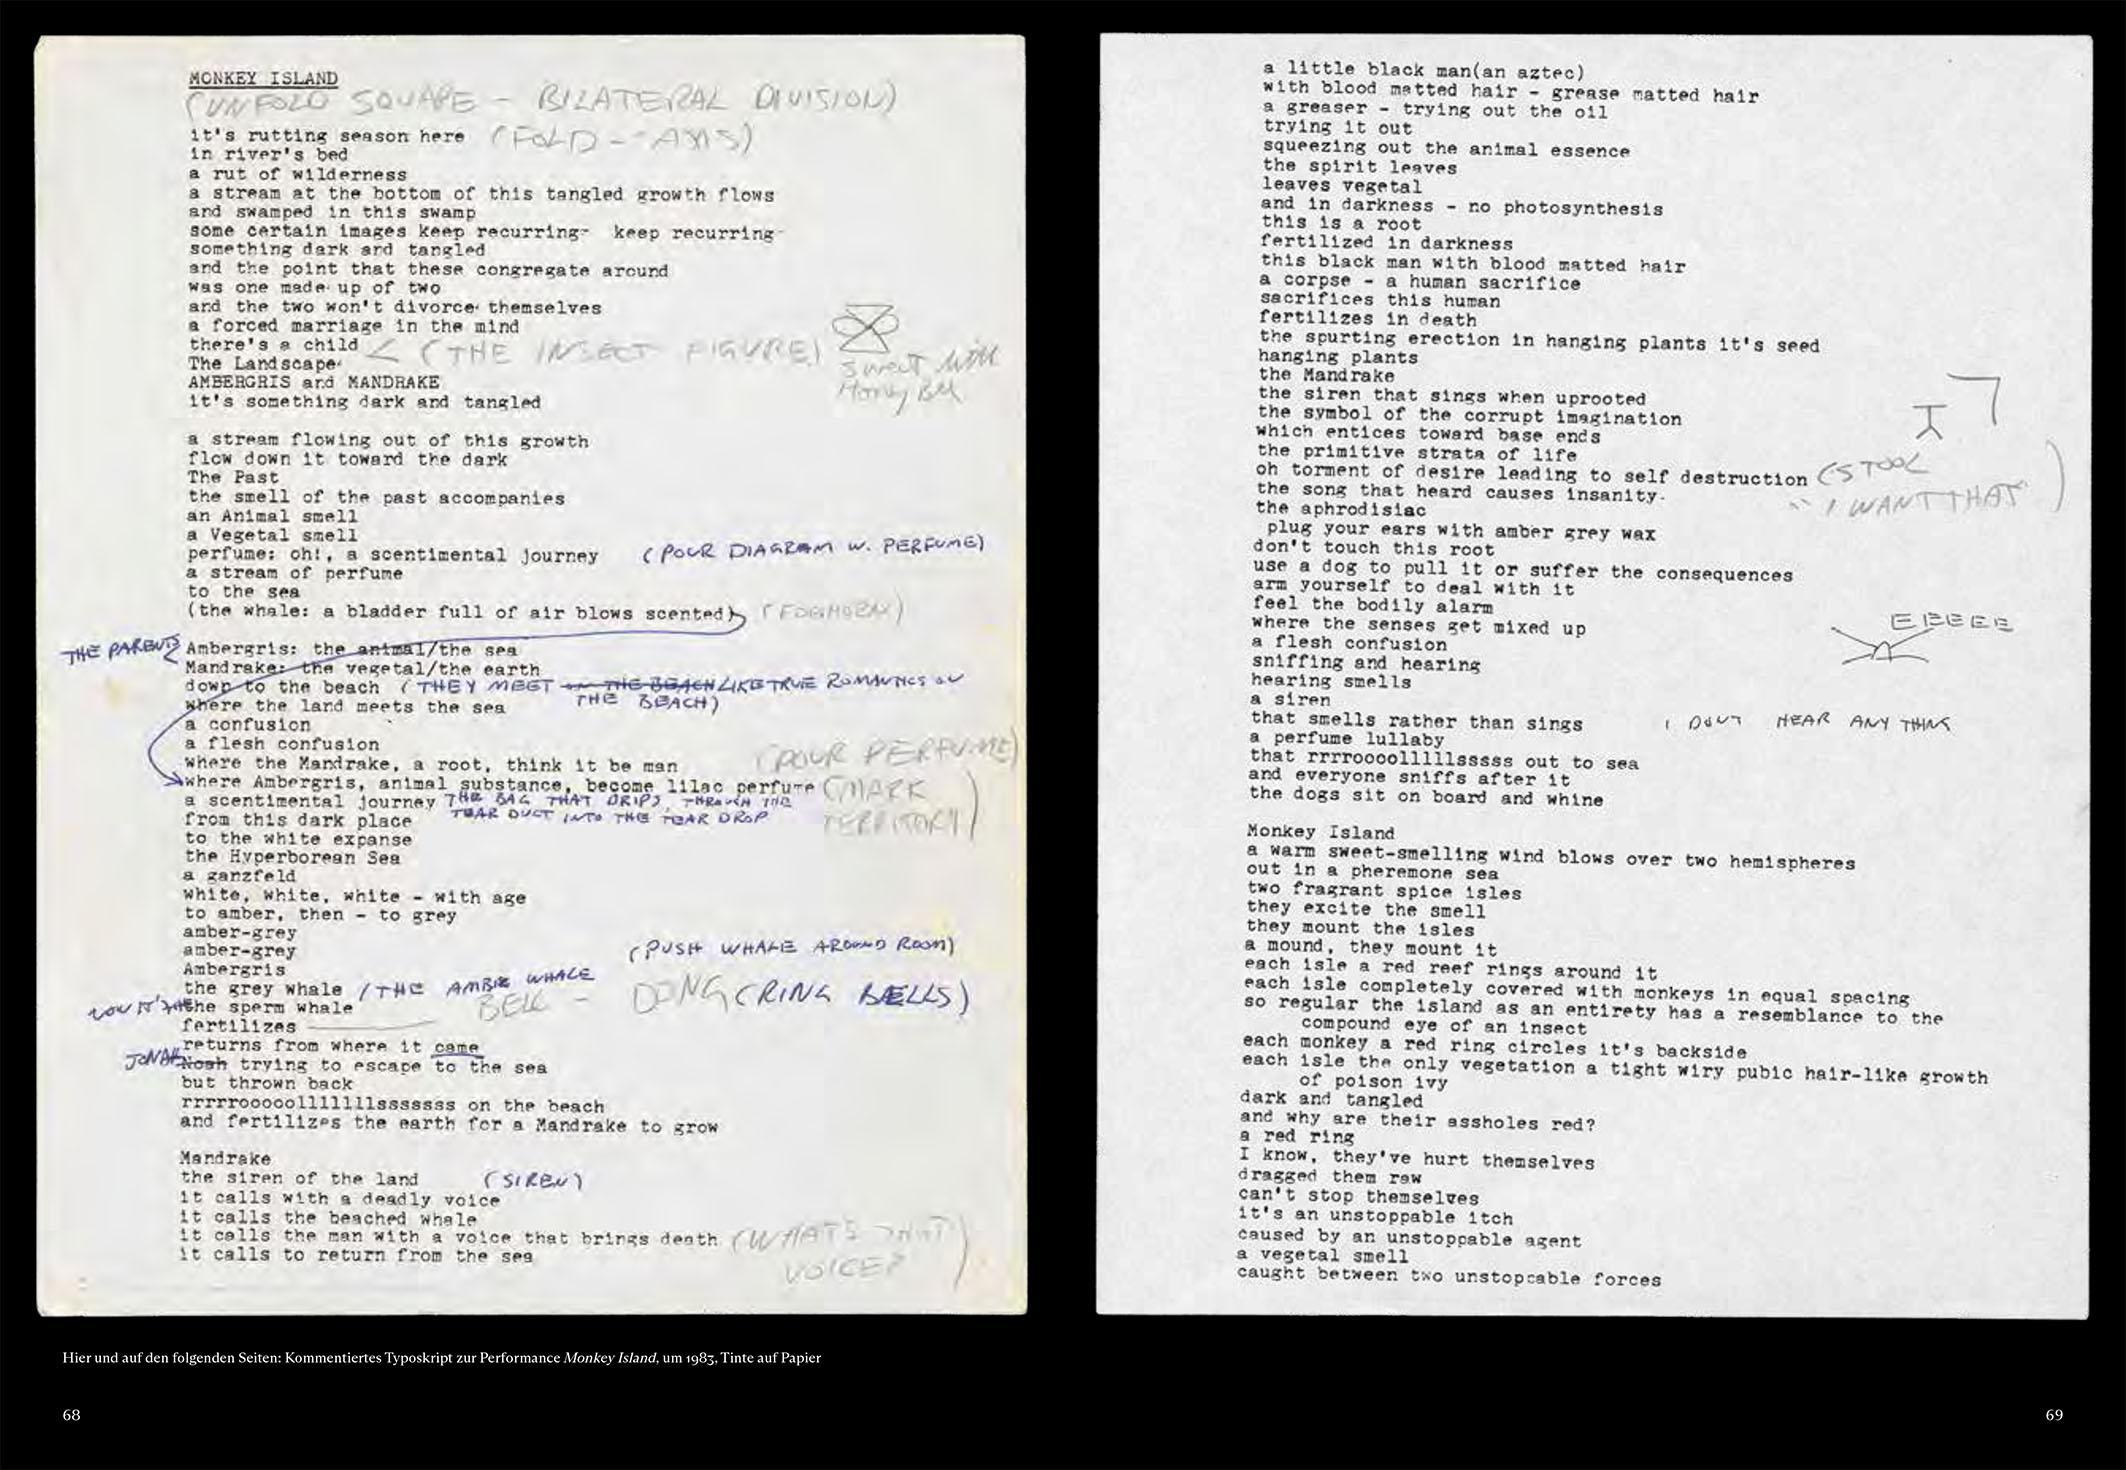 MONKEY ISLAND
(UNFOLD SQUARE - BILATERAL DIVISION)
it's rutting season here (FOLD - AXIS)
in river's bed
a rut of wilderness
a stream at the bottom of this tangled growth flows
and swamped in this swamp
some certain images keep recurring- keep recurring-
something dark and tangled
and the point that these congregate around
was one made up of two
and the two won't divorce themselves
a forced marriage in the mind
there's a child < (THE INSECT FIGURE)
sweat with
Honey Bee
The Landscape
AMBERGRIS and MANDRAKE
it's something dark and tangled
a stream flowing out of this growth
flow down it toward the dark
The Past
the smell of the past accompanies
an Animal smell
a Vegetal smell
perfume: oh!, a scentimental journey (POUR DIAGRAM W. PERFUME)
a stream of perfume
to the sea
(the whale: a bladder full of air blows scented) (FOGHORN)
THE PARENTS Ambergris: the animal/the sea
Mandrake: the vegetal/the earth
down to the beach (THEY MEET ON THE BEACH LIKE TRUE ROMANTICS ON
THE BEACH)
where the land meets the sea
a confusion
a flesh confusion
where the Mandrake, a root, think it be man (POUR PERFUME)
where Ambergris, animal substance, become lilac perfume (MARK
TERRITORY)
a scentimental journey THE BAG THAT DRIPS THROUGH THE
from this dark place TEAR DUCT INTO THE TEAR DROP
to the white expanse
the Hyperborean Sea
a ganzfeld
white, white, white - with age
to amber, then - to grey
amber-grey
amber-grey (PUSH WHALE AROUND ROOM)
Ambergris
the grey whale (THE AMBER WHALE
BELL - DONG (RING BELLS)
NOW IT'S the sperm whale
fertilizes
returns from where it came
JONAH Noah trying to escape to the sea
but thrown back
rrrrrooooolllllllsssssss on the beach
and fertilizes the earth for a Mandrake to grow
Mandrake
the siren of the land (SIREN)
it calls with a deadly voice
it calls the beached whale
it calls the man with a voice that brings death (WHAT'S THAT
VOICE?)
it calls to return from the sea
a little black man(an aztec)
with blood matted hair - grease matted hair
a greaser - trying out the oil
trying it out
squeezing out the animal essence
the spirit leaves
leaves vegetal
and in darkness - no photosynthesis
this is a root
fertilized in darkness
this black man with blood matted hair
a corpse - a human sacrifice
sacrifices this human
fertilizes in death
the spurting erection in hanging plants it's seed
hanging plants
the Mandrake
the siren that sings when uprooted
the symbol of the corrupt imagination
which entices toward base ends
the primitive strata of life
oh torment of desire leading to self destruction (STOOL
"I WANT THAT")
the song that heard causes insanity.
the aphrodisiac
plug your ears with amber grey wax
don't touch this root
use a dog to pull it or suffer the consequences
arm yourself to deal with it
feel the bodily alarm
where the senses get mixed up
EEEEE
a flesh confusion
sniffing and hearing
hearing smells
a siren
that smells rather than sings I DON'T HEAR ANY THING
a perfume lullaby
that rrrroooollllllsssss out to sea
and everyone sniffs after it
the dogs sit on board and whine
Monkey Island
a warm sweet-smelling wind blows over two hemispheres
out in a pheremone sea
two fragrant spice isles
they excite the smell
they mount the isles
a mound, they mount it
each isle a red reef rings around it
each isle completely covered with monkeys in equal spacing
so regular the island as an entirety has a resemblance to the
compound eye of an insect
each monkey a red ring circles it's backside
each isle the only vegetation a tight wiry pubic hair-like growth
of poison ivy
dark and tangled
and why are their assholes red?
a red ring
I know, they've hurt themselves
dragged them raw
can't stop themselves
it's an unstoppable itch
caused by an unstoppable agent
a vegetal smell
caught between two unstoppable forces
Hier und auf den folgenden Seiten: Kommentiertes Typoskript zur Performance Monkey Island, um 1983, Tinte auf Papier
68
69